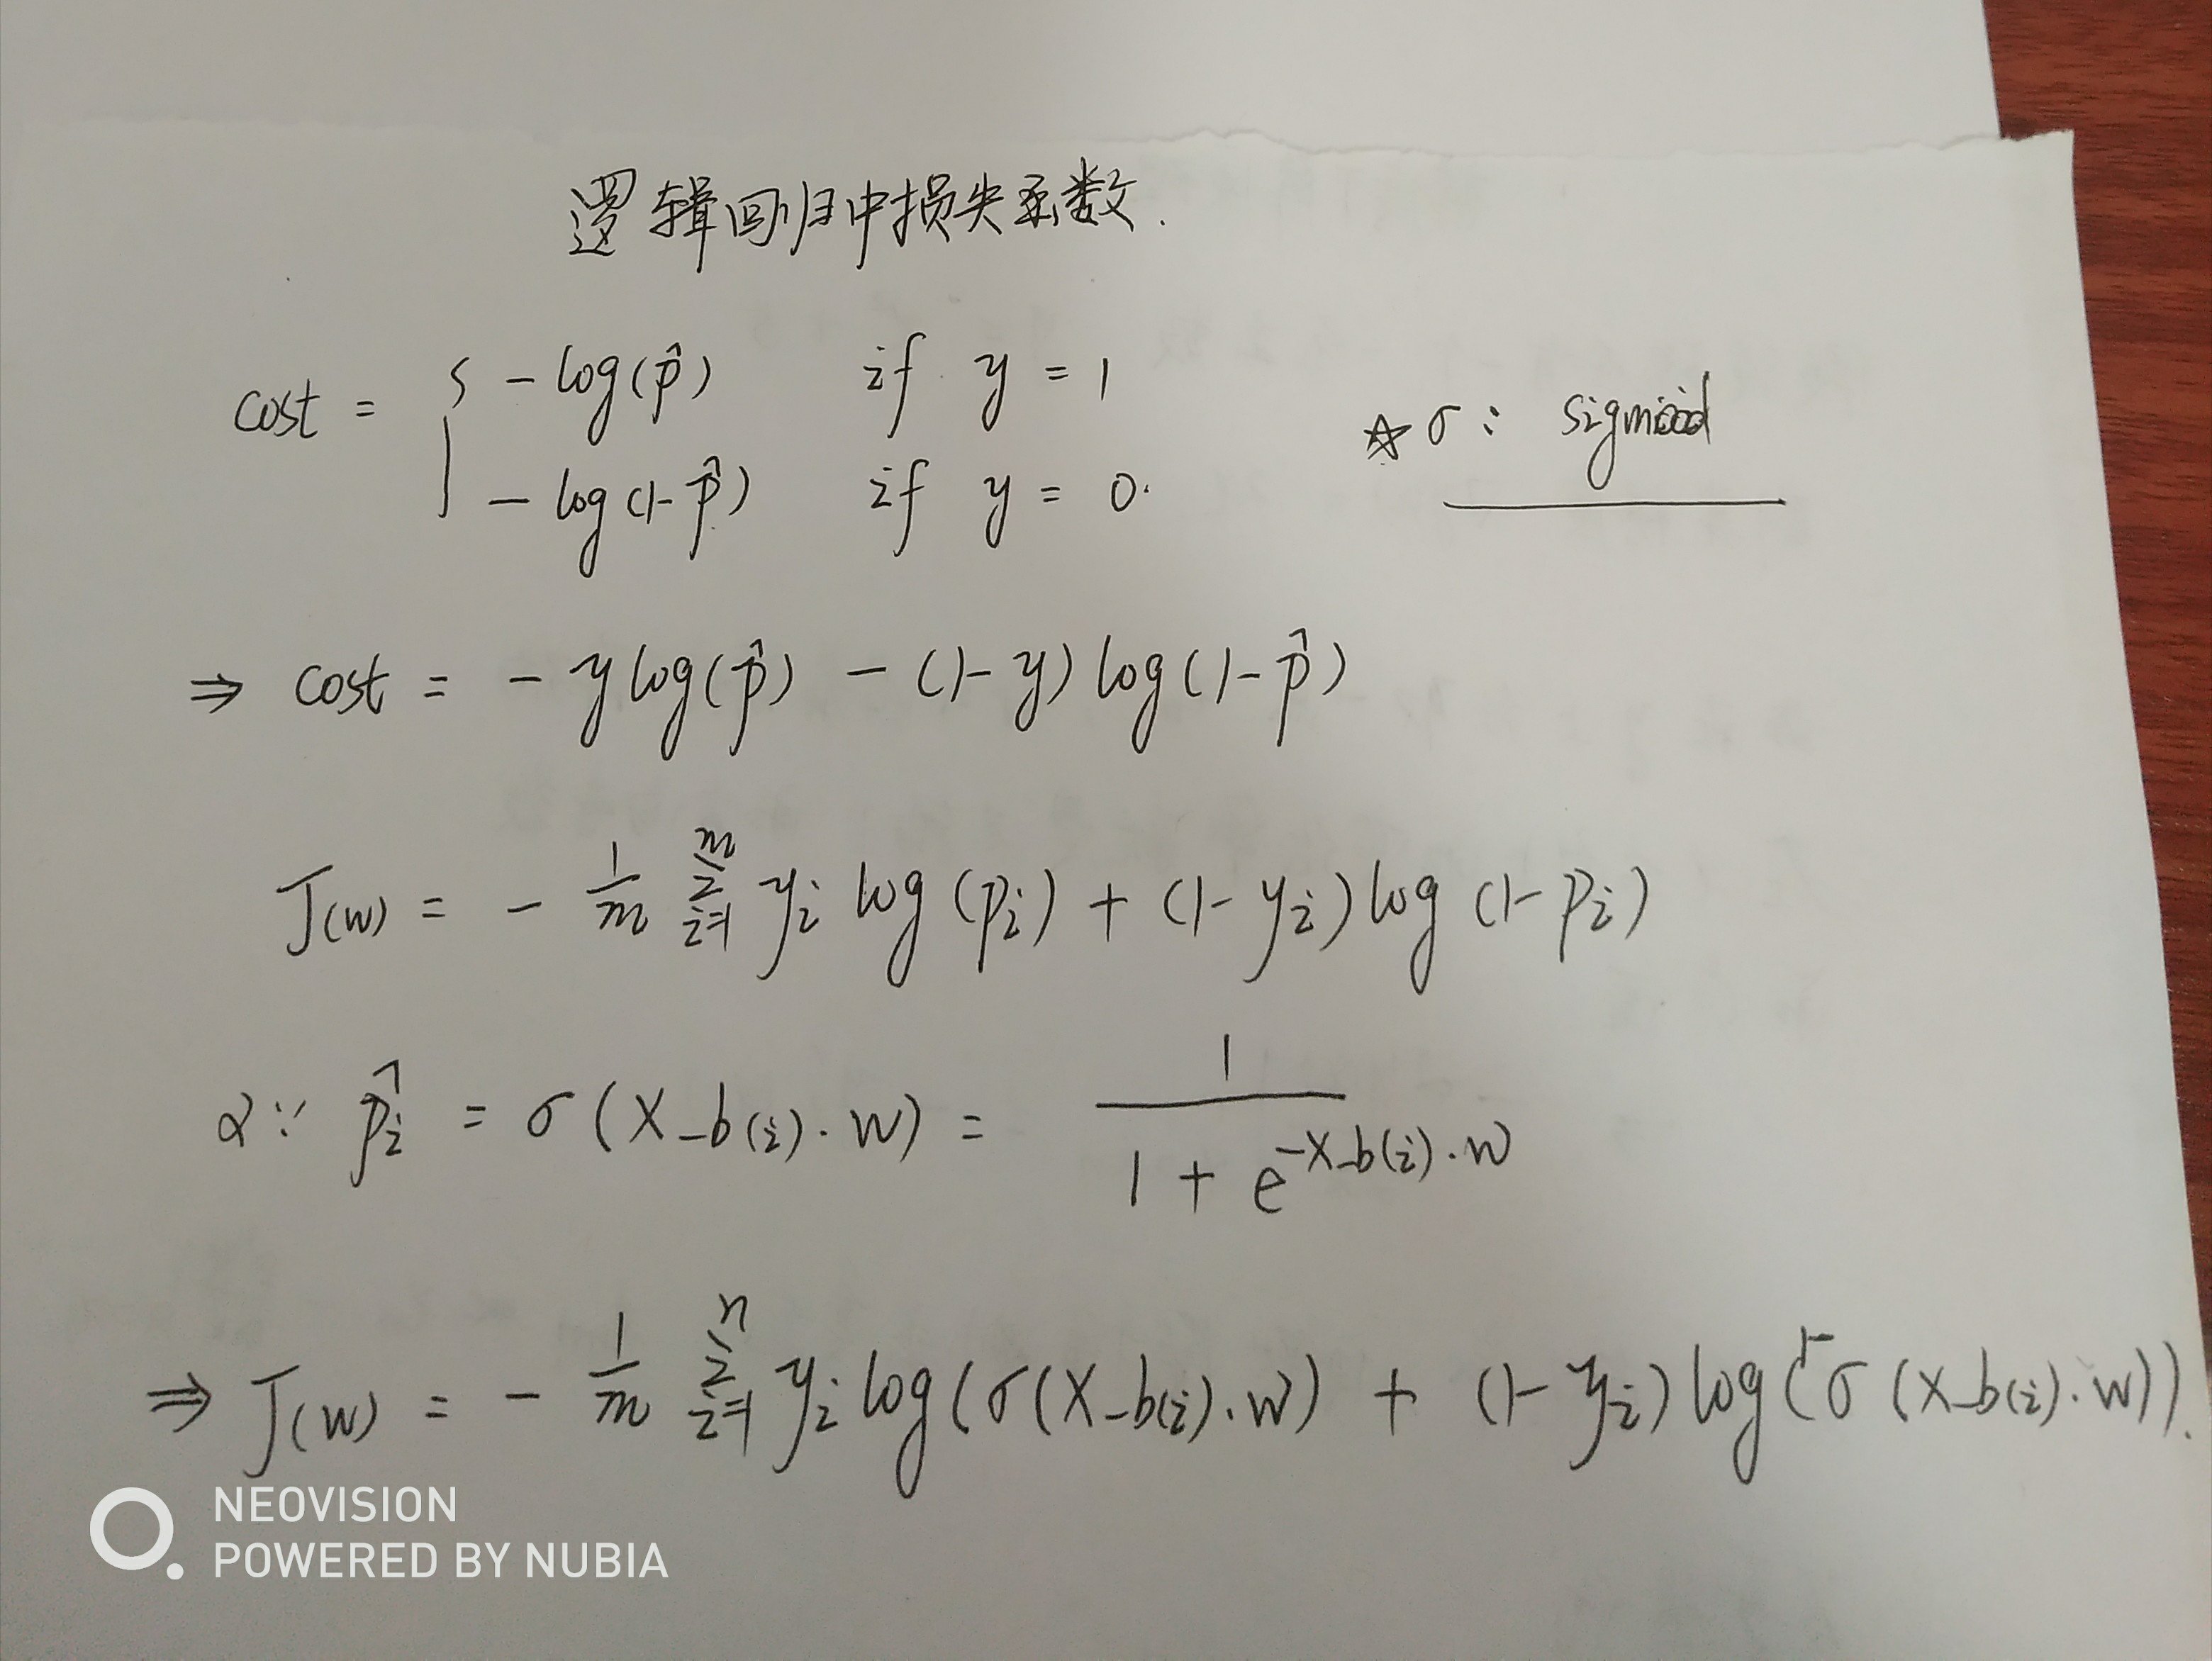 逻辑回归中损失函数.
cost = { - log(p̂) if y = 1
- log(1-p̂) if y = 0.
☆ σ: sigmoid
⇒ cost = - y log(p̂) - (1-y) log(1-p̂)
J(w) = - 1/m ∑_{i=1}^{m} y_i log(p_i) + (1-y_i) log(1-p_i)
又∵ p̂_i = σ(X_b(i)·w) = 1/(1 + e^{-X_b(i)·w})
⇒ J(w) = - 1/m ∑_{i=1}^{n} y_i log(σ(X_b(i)·w) + (1-y_i) log(1-σ(X_b(i)·w)).
NEOVISION
POWERED BY NUBIA